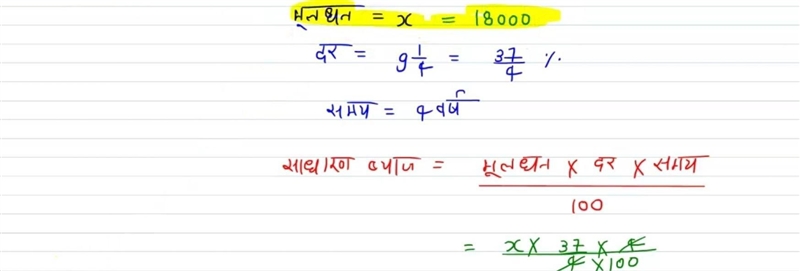 मूलधन = x = 18000
दर = 9 1/4 = 37/4 %
समय = 4 वर्ष
साधारण ब्याज = मूलधन x दर x समय / 100
= x x 37 x 4 / 4 x 100